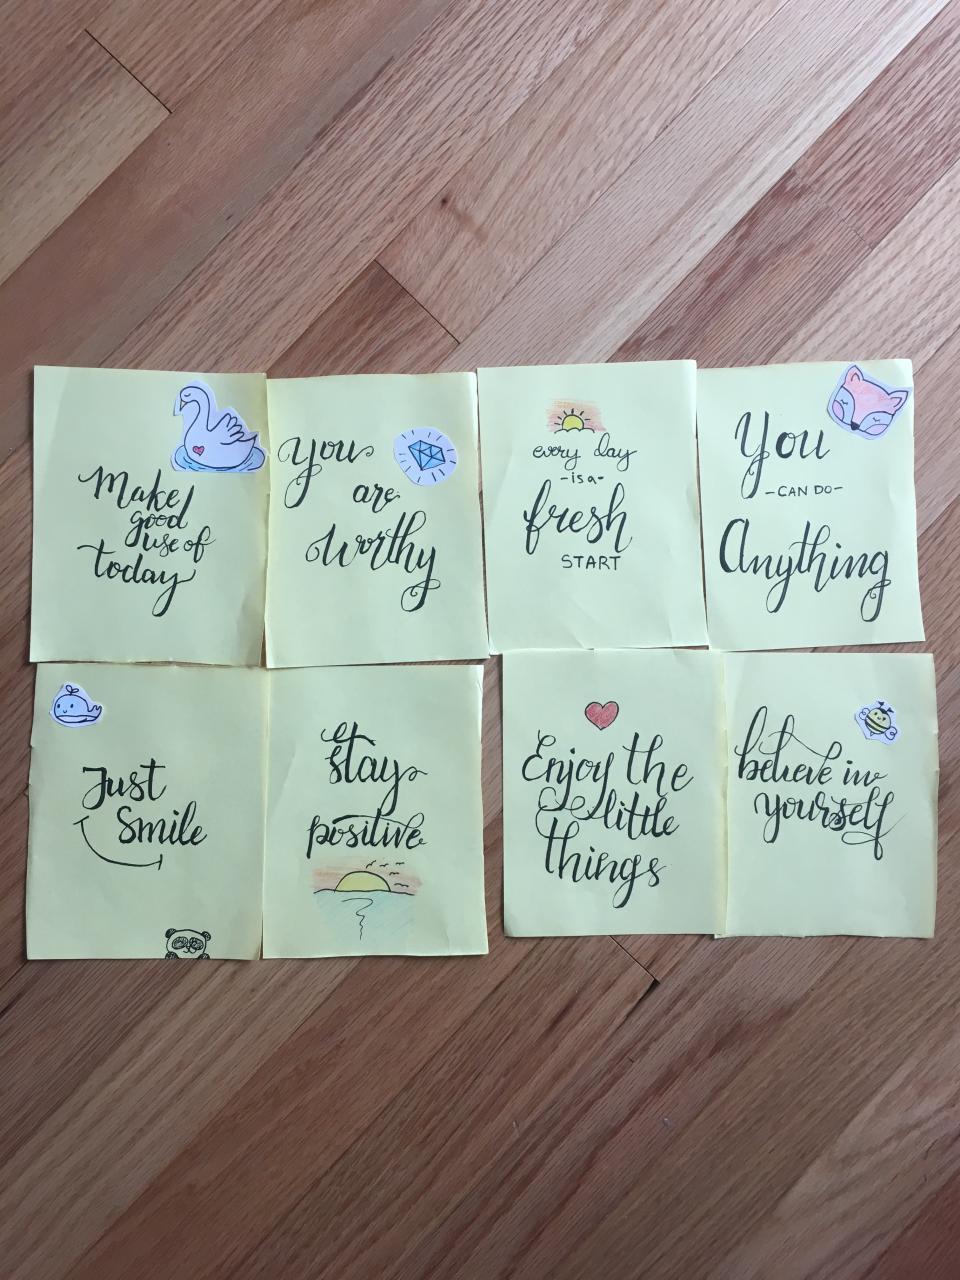 Make
good
use of
today
You
are
worthy
every day
-is a-
fresh
START
You
-CAN DO-
Anything
Just
Smile
stay
positive
Enjoy the
little
things
believe in
yourself